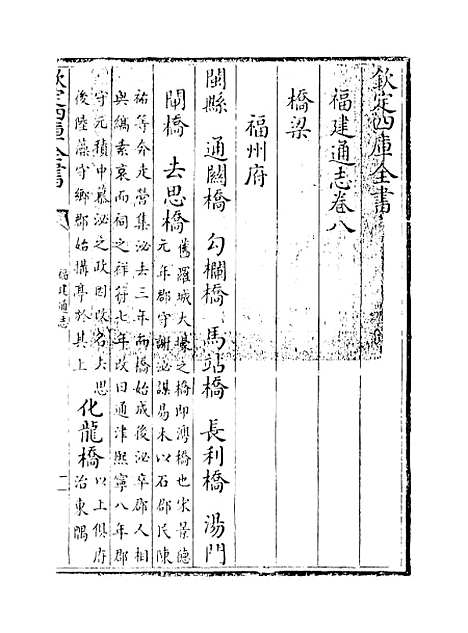 欽定四庫全書
福建通志卷八
橋梁
福州府
閩縣 通闗橋 勾欄橋 馬站橋 長利橋 湯門
閘橋 去思橋 舊羅城大壕之橋即澳橋也宋景徳
元年郡守謝泌謀易木以石郡民陳
祐等分走營集泌去三年而橋始成後泌卒郡人相
與縞素哀而祠之祥符七年改曰通津熙寧八年郡
守元積中慕泌之政因改名去思
後陸藻守鄉郡始搆亭於其上 化龍橋 以上俱府
治東隅
欽定四庫全書
福建通志
一